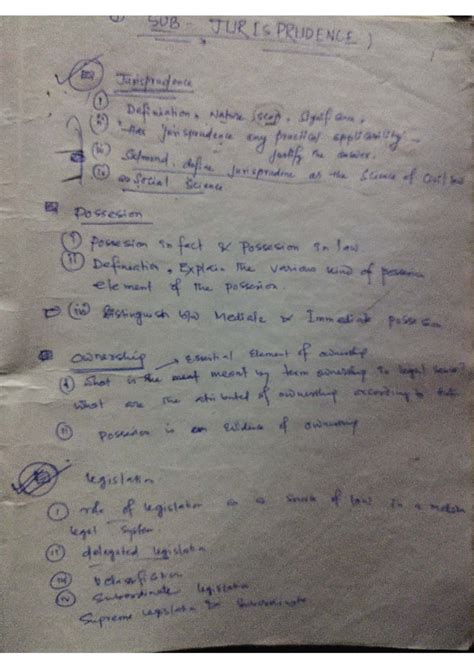 ① SUB - JURISPRUDENCE )
Jurisprudence
(i) Defination, Nature, scop, Signficance,
(ii) Has jurisprudence any practical applicability -
justify the answer.
(iii) Salmond define jurisprudence as the Science of Civil law
(iv) Social Science
Possesion
(i) Possesion in fact & Possesion in law.
(ii) Defination, Explain the various kind of possesion
element of the possesion.
(iii) Distinguish b/w Mediate & Immediate possesion
Ownership → Essential Element of ownership
(i) What is the meant by term ownership in legal sense?
What are the atributed of ownership according to
(ii) Possesion is an evidence of ownership
legislation
(i) role of legislation as a source of law in a modern
legal system.
(ii) delegated legislation
(iii) classification
(iv) Subordinate legislation
Supreme legislation & Subordinate